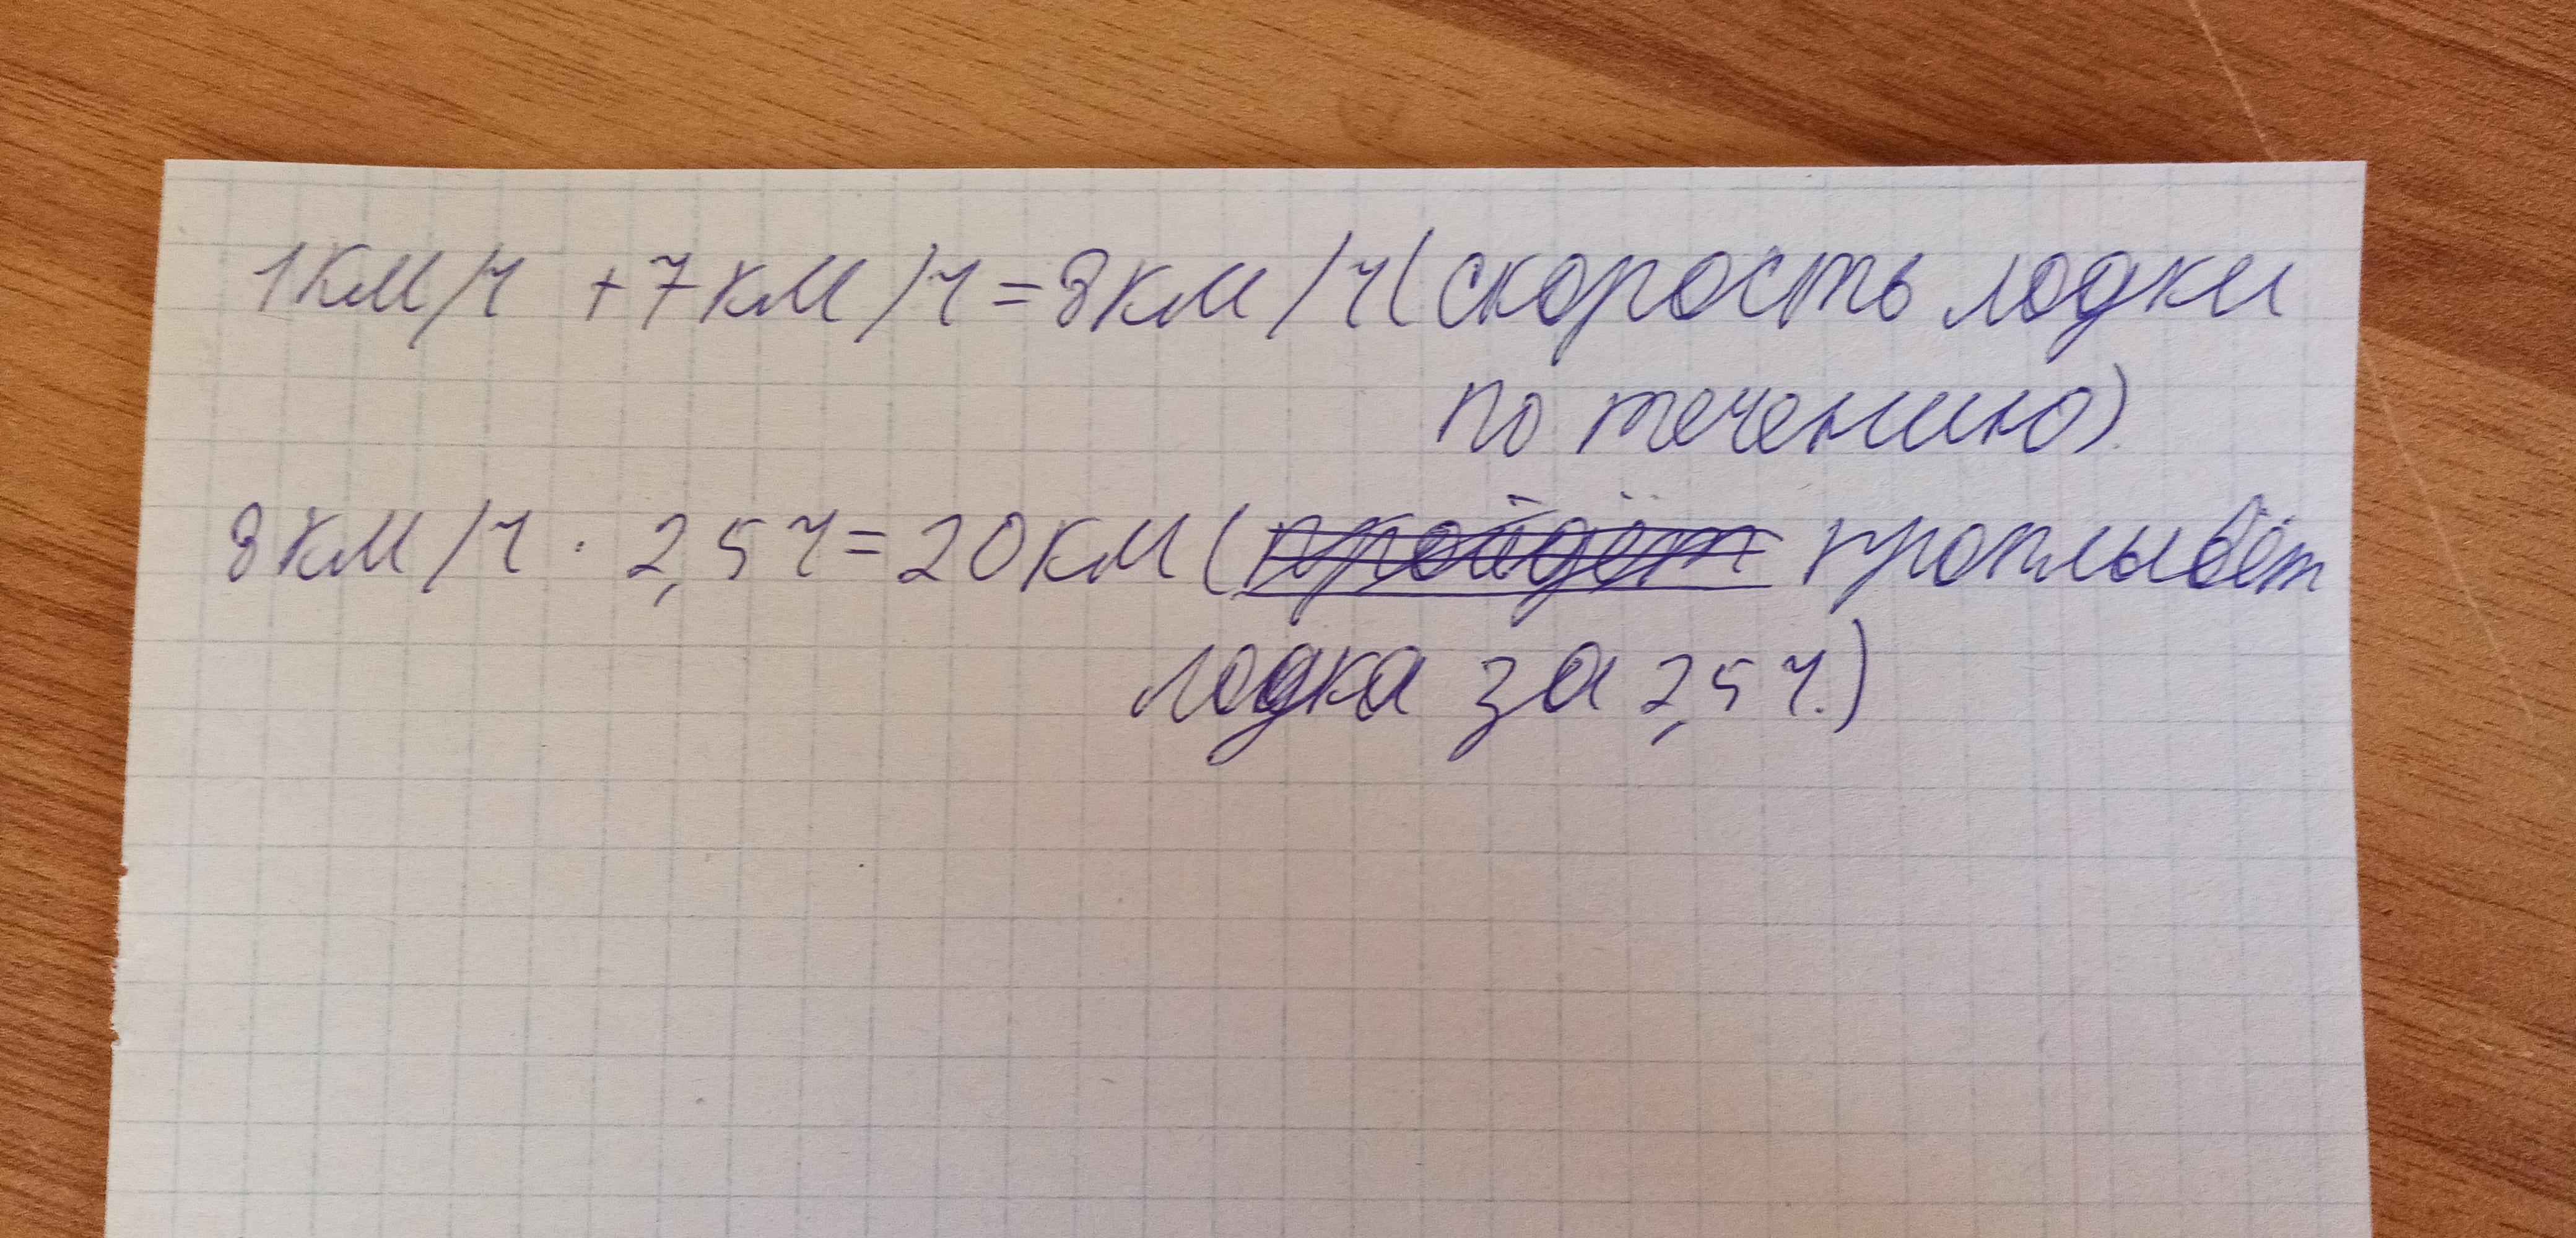 1км/ч +7км/ч=8км/ч(скорость лодки
по течению)
8км/ч · 2,5ч=20км(пройдёт проплывёт
лодка за 2,5 ч.)